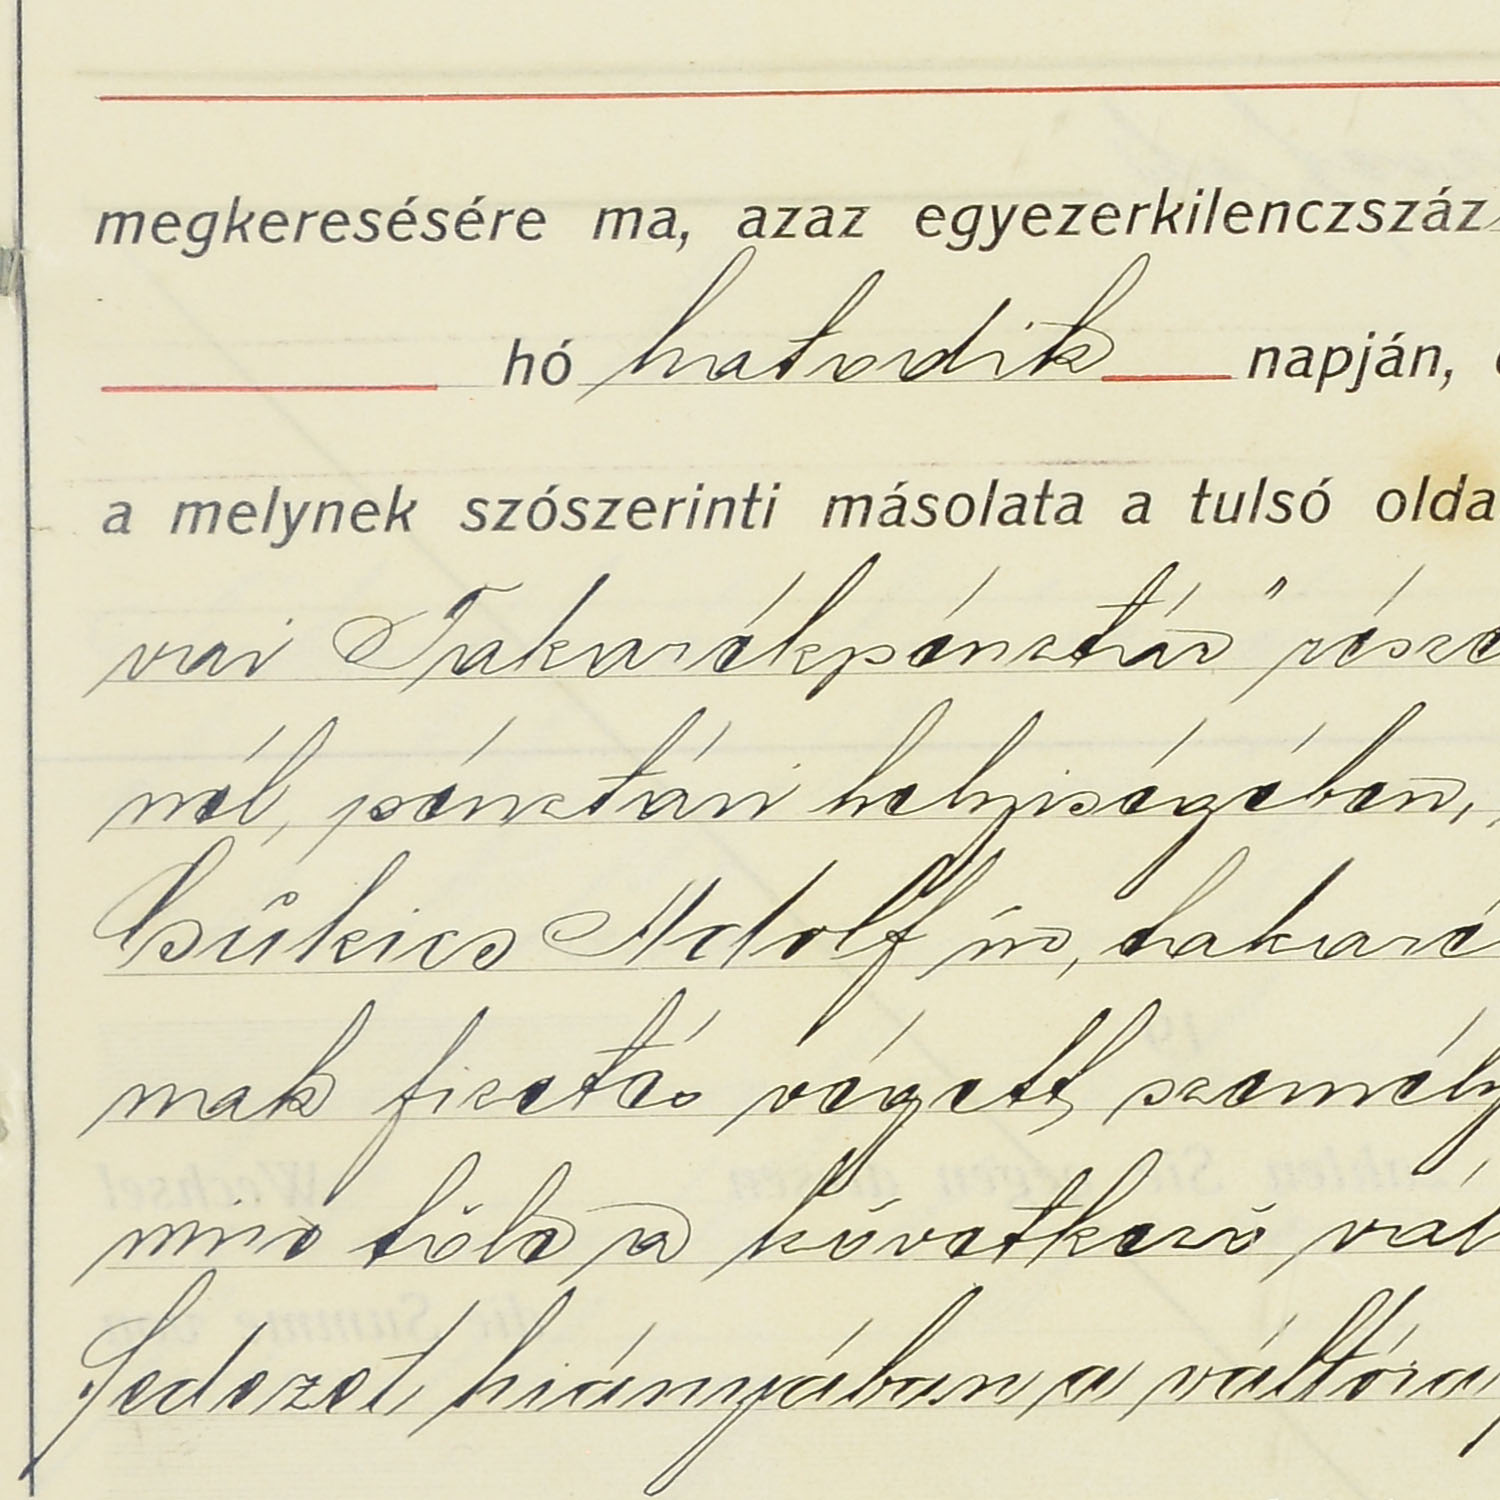 megkeresésére ma, azaz egyezerkilenczszáz
hó hatodik napján,
a melynek szószerinti másolata a tulsó olda
vai Takarékpénztár" része
nél, pénztári helyiségében,
Adolf úr, takaré
nak fizetés végett személy
mire tőle a következő vál
Fedezet hiányában a váltóra